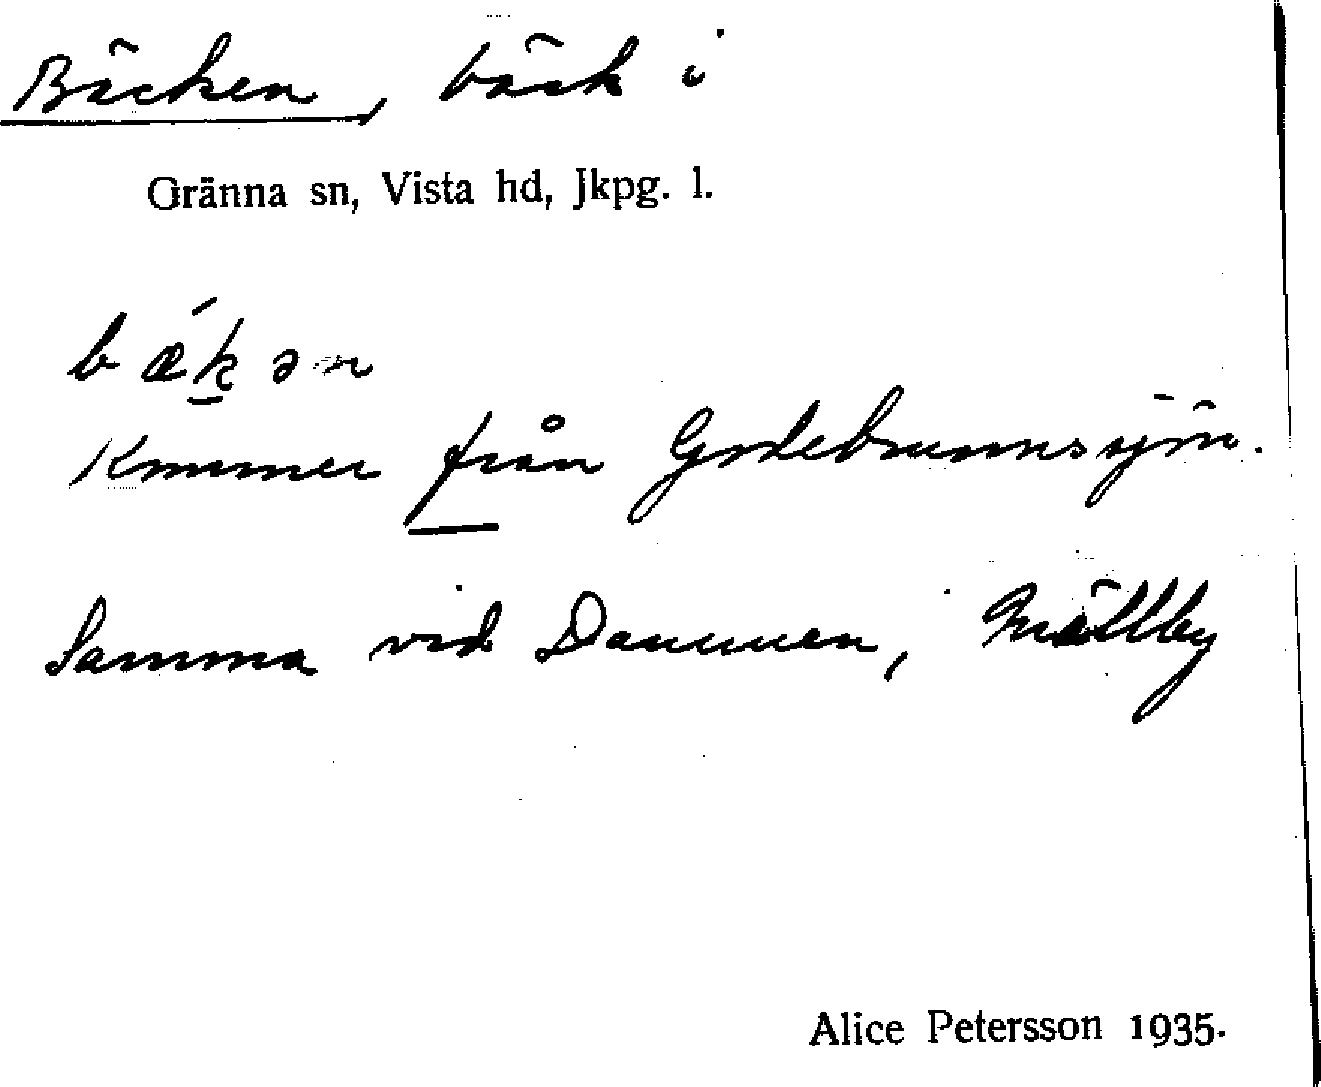 Bäcken, bäck i
Gränna sn, Vista hd, Jkpg. l.
bǽk̠ən
Kommer från Godebrunnssjön.
Samma vid Dammen, Mällby
Alice Petersson 1935.